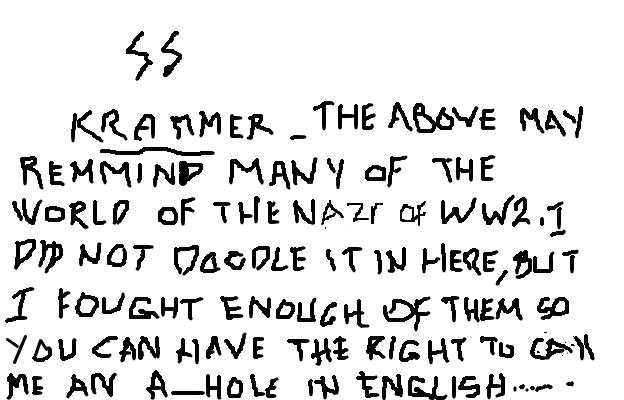 SS
KRAMMER - THE ABOVE MAY
REMMIND MANY OF THE
WORLD OF THE NAZI OF WW2. I
DID NOT DOODLE IT IN HERE, BUT
I FOUGHT ENOUGH OF THEM SO
YOU CAN HAVE THE RIGHT TO CALL
ME AN A_HOLE IN ENGLISH......